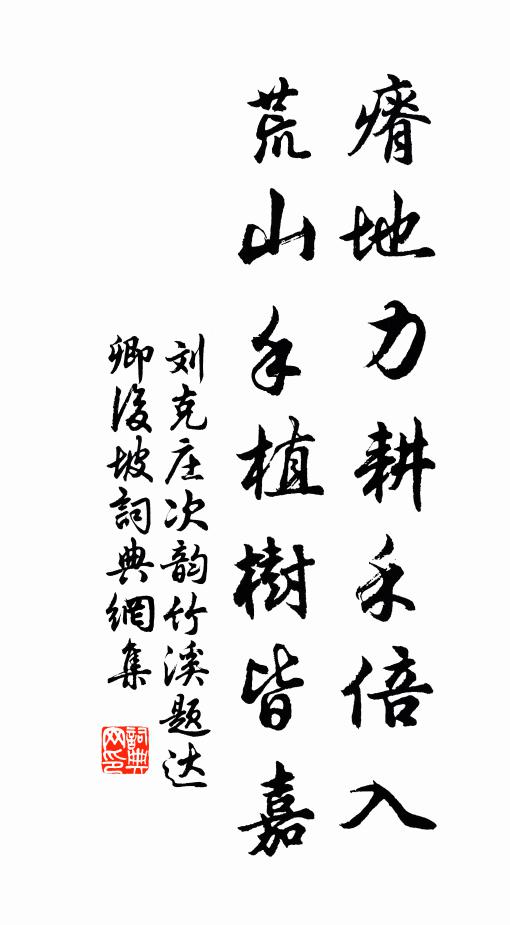 瘠地力耕禾倍入
荒山手植樹皆嘉
刘克庄次韵竹溪题达
卿後坡詞典網集
詞典
网印